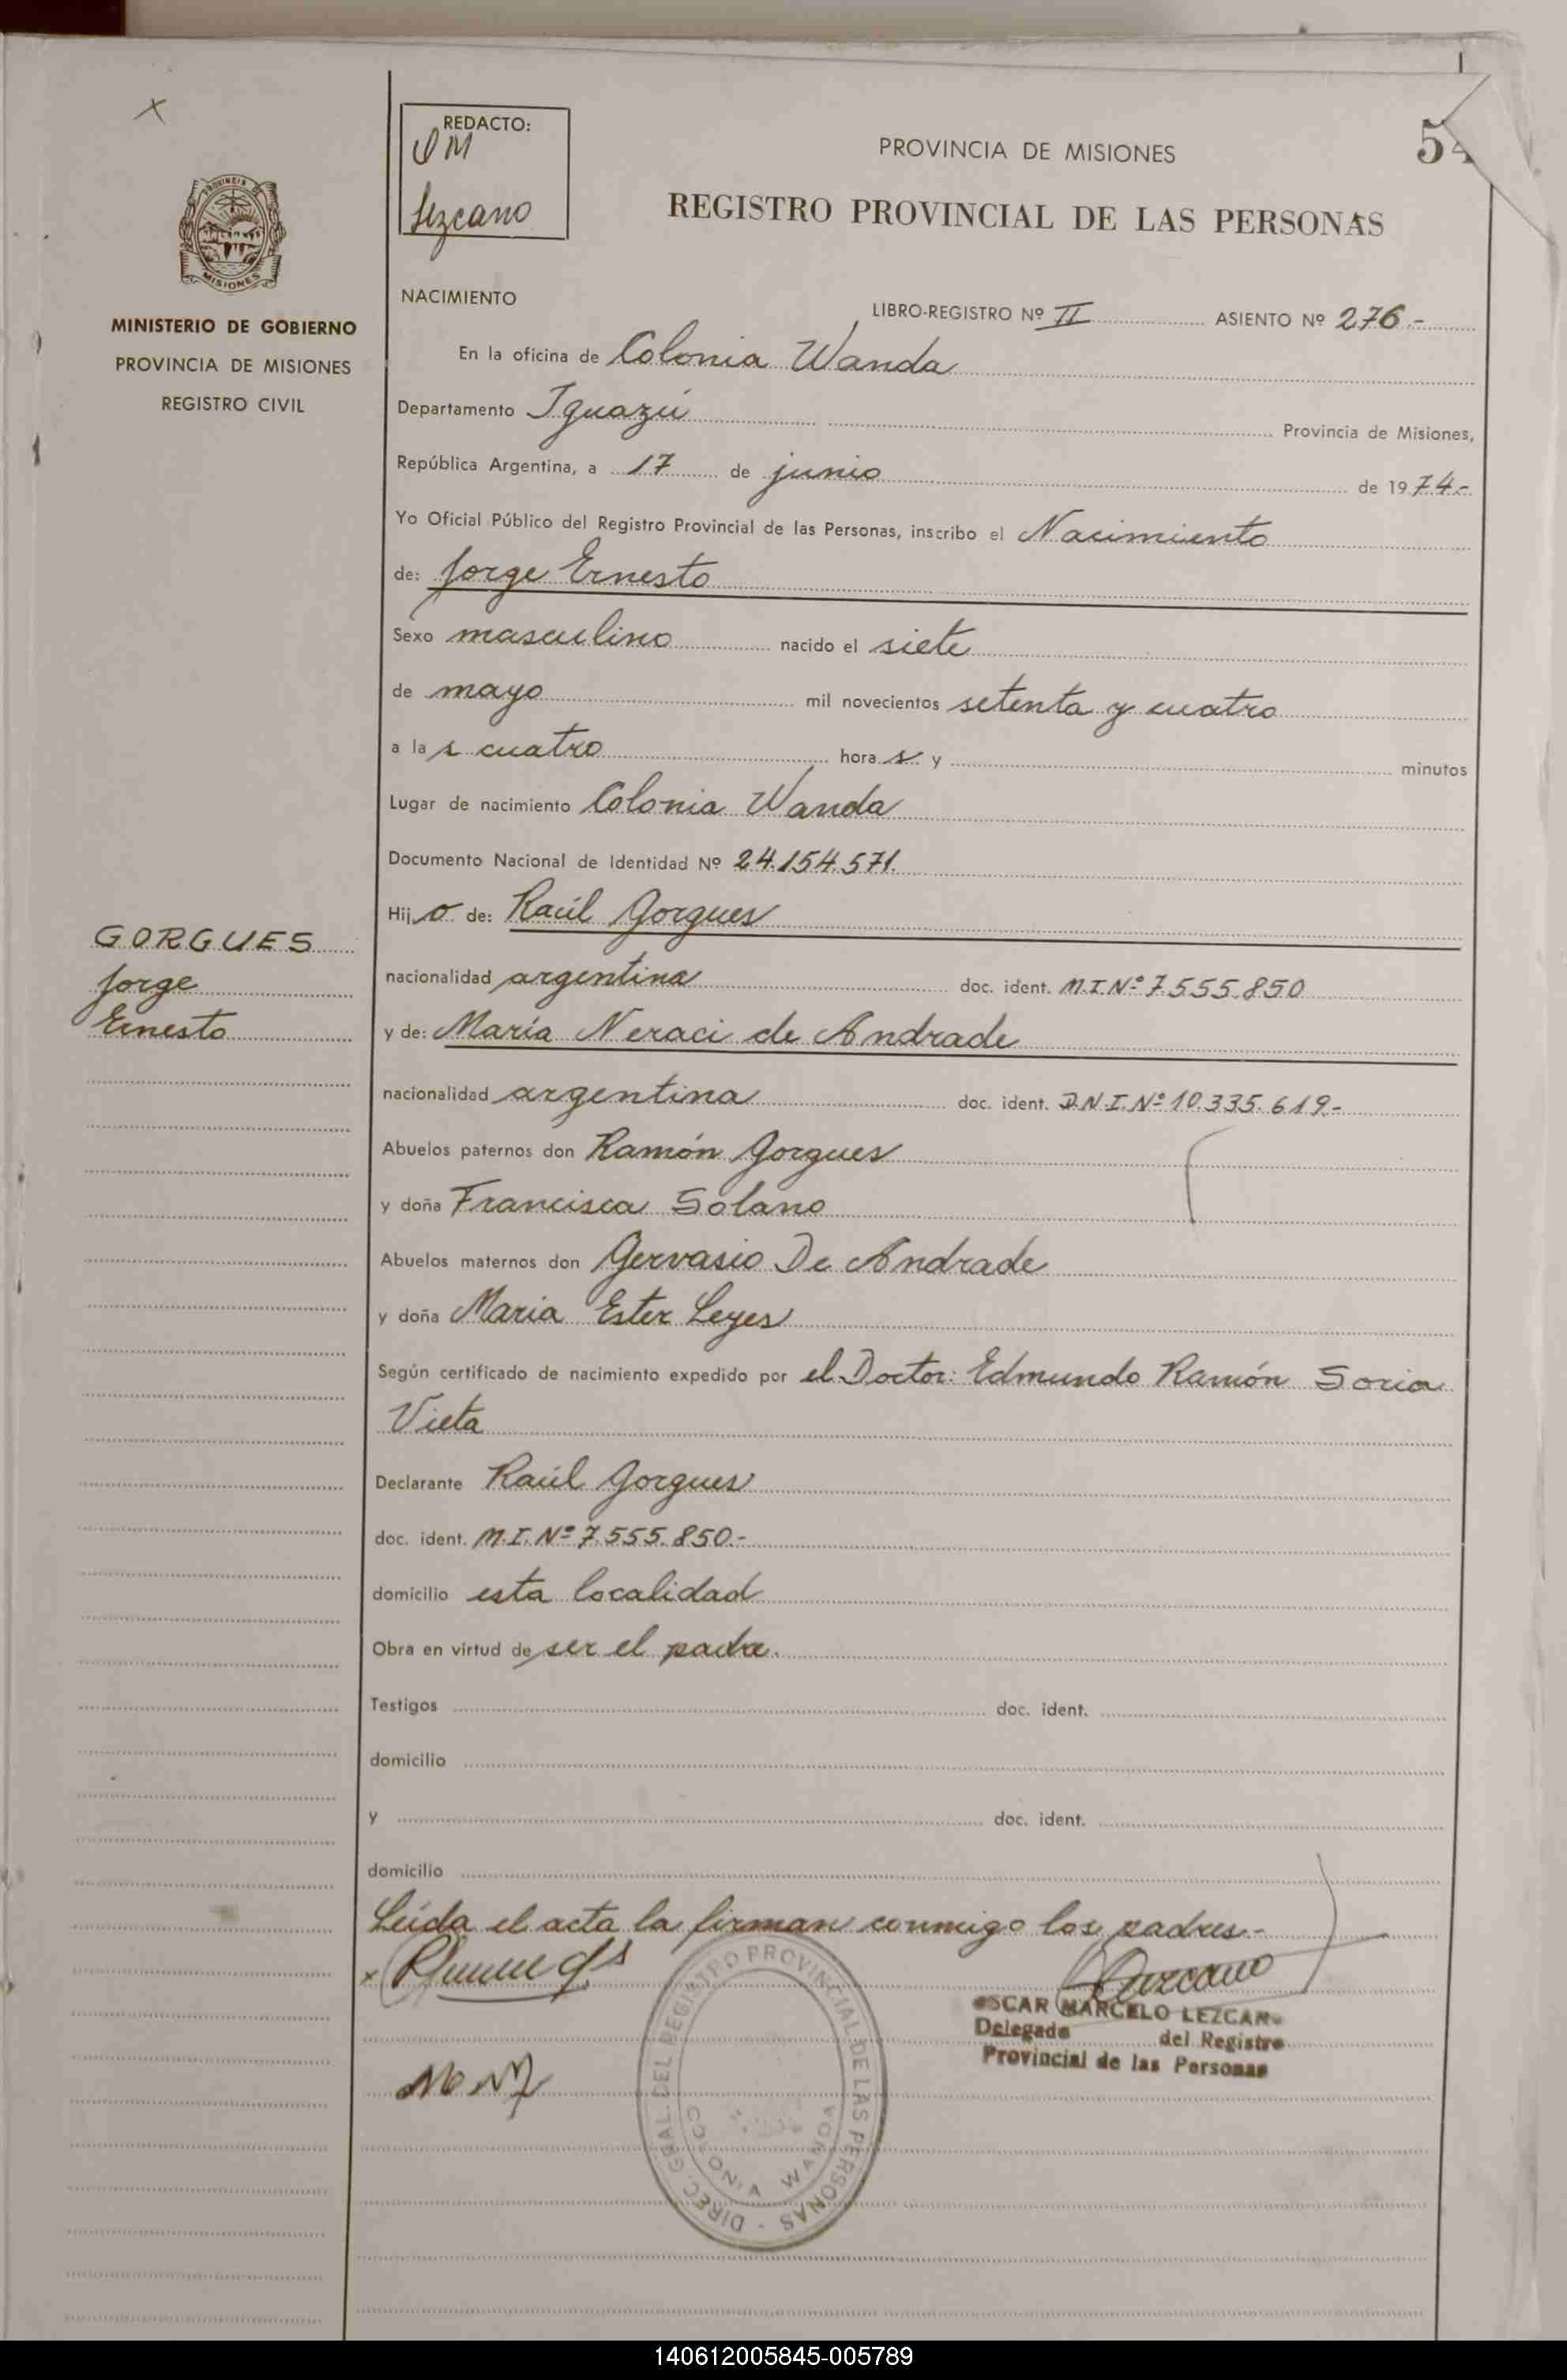 REDACTO:
OM
Lezcano
PROVINCIA DE MISIONES
54
REGISTRO PROVINCIAL DE LAS PERSONAS
PROVINCIA DE
MISIONES
MINISTERIO DE GOBIERNO
PROVINCIA DE MISIONES
REGISTRO CIVIL
NACIMIENTO
LIBRO-REGISTRO Nº II ASIENTO Nº 276.-
En la oficina de Colonia Wanda
Departamento Iguazú Provincia de Misiones,
República Argentina, a 17 de junio de 1974.-
Yo Oficial Público del Registro Provincial de las Personas, inscribo el Nacimiento
de: Jorge Ernesto
Sexo masculino nacido el siete
de mayo mil novecientos setenta y cuatro
a las cuatro horas y minutos
Lugar de nacimiento Colonia Wanda
Documento Nacional de Identidad Nº 24.154.571.
Hijo de: Raúl Gorgues
GORGUES
Jorge
Ernesto
nacionalidad argentina doc. ident. M.I.Nº 7.555.850
y de: María Neraci de Andrade
nacionalidad argentina doc. ident. D.N.I.Nº 10.335.619-
Abuelos paternos don Ramón Gorgues
y doña Francisca Solano
Abuelos maternos don Gervasio De Andrade
y doña Maria Ester Leyes
Según certificado de nacimiento expedido por el Doctor: Edmundo Ramón Soria
Vieta
Declarante Raúl Gorgues
doc. ident. M.I. Nº 7.555.850.-
domicilio esta localidad
Obra en virtud de ser el padre.
Testigos doc. ident.
domicilio
y doc. ident.
domicilio
Leída el acta la firman conmigo los padres.-
Lezcano
OSCAR MARCELO LEZCANO
Delegado del Registro
Provincial de las Personas
DIREC. GRAL. DEL REGISTRO PROVINCIAL DE LAS PERSONAS -
COLONIA WANDA
140612005845-005789